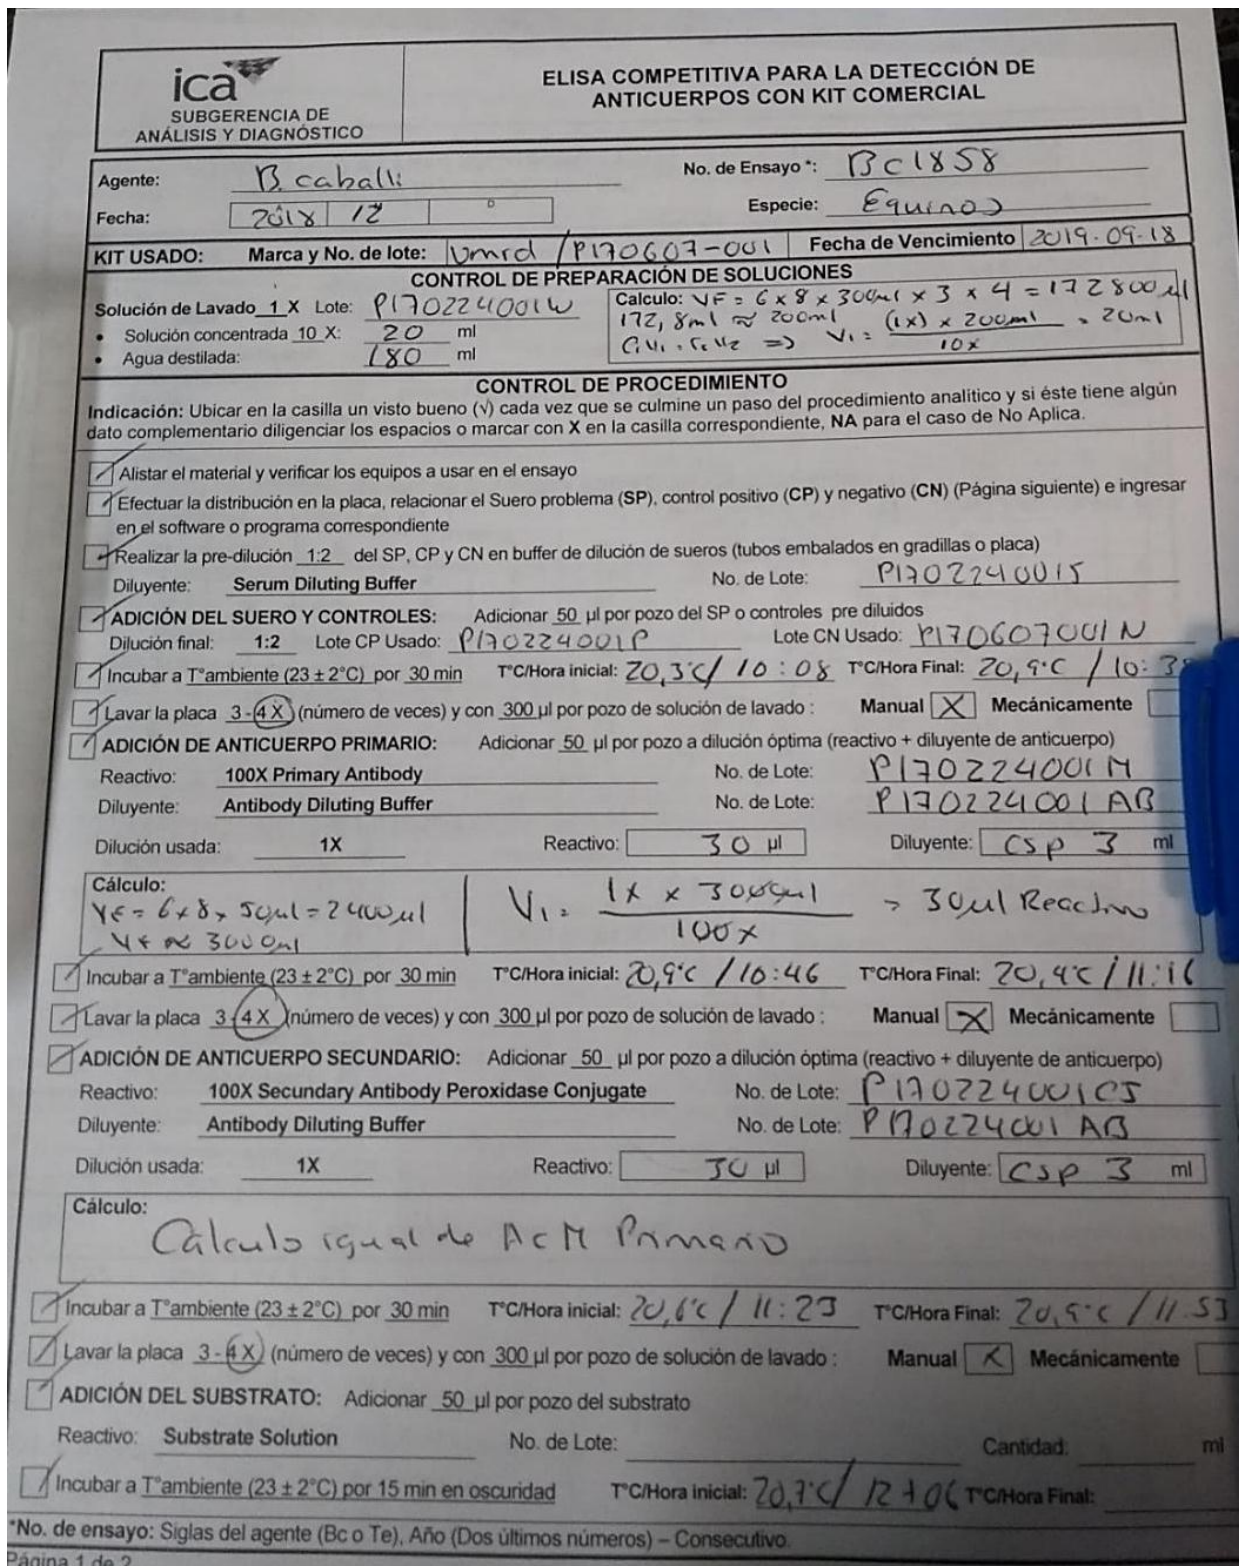 ica
SUBGERENCIA DE
ANÁLISIS Y DIAGNÓSTICO
ELISA COMPETITIVA PARA LA DETECCIÓN DE
ANTICUERPOS CON KIT COMERCIAL
Agente: B. caballi No. de Ensayo *: Bc1858
Fecha: 2018 12 D Especie: Equinos
KIT USADO: Marca y No. de lote: Vmrd / P170607-001 Fecha de Vencimiento 2019-09-18
CONTROL DE PREPARACIÓN DE SOLUCIONES
Solución de Lavado 1 X Lote: P170224001W
• Solución concentrada 10 X: 20 ml
• Agua destilada: 180 ml
Calculo: VF = 6 x 8 x 300µl x 3 x 4 = 172800 µl
172,8ml ≈ 200ml
C1V1 = C2V2 => V1 = (1x) x 200ml / 10x = 20ml
CONTROL DE PROCEDIMIENTO
Indicación: Ubicar en la casilla un visto bueno (√) cada vez que se culmine un paso del procedimiento analítico y si éste tiene algún
dato complementario diligenciar los espacios o marcar con X en la casilla correspondiente, NA para el caso de No Aplica.
Alistar el material y verificar los equipos a usar en el ensayo
Efectuar la distribución en la placa, relacionar el Suero problema (SP), control positivo (CP) y negativo (CN) (Página siguiente) e ingresar
en el software o programa correspondiente
Realizar la pre-dilución 1:2 del SP, CP y CN en buffer de dilución de sueros (tubos embalados en gradillas o placa)
Diluyente: Serum Diluting Buffer No. de Lote: P170224001S
ADICIÓN DEL SUERO Y CONTROLES: Adicionar 50 µl por pozo del SP o controles pre diluidos
Dilución final: 1:2 Lote CP Usado: P170224001P Lote CN Usado: P170607001N
Incubar a T°ambiente (23 ± 2°C) por 30 min T°C/Hora inicial: 20,3°C/ 10:08 T°C/Hora Final: 20,9°C / 10:38
Lavar la placa 3-4 X (número de veces) y con 300 µl por pozo de solución de lavado : Manual X Mecánicamente
ADICIÓN DE ANTICUERPO PRIMARIO: Adicionar 50 µl por pozo a dilución óptima (reactivo + diluyente de anticuerpo)
Reactivo: 100X Primary Antibody No. de Lote: P170224001M
Diluyente: Antibody Diluting Buffer No. de Lote: P170224001 AB
Dilución usada: 1X Reactivo: 30 µl Diluyente: csp 3 ml
Cálculo:
VF = 6 x 8 x 50µl = 2400µl
VF ≈ 3000µl
V1 = 1x x 3000µl / 100x = 30µl Reactivo
Incubar a T°ambiente (23 ± 2°C) por 30 min T°C/Hora inicial: 20,9°C / 10:46 T°C/Hora Final: 20,4°C / 11:16
Lavar la placa 3-4 X (número de veces) y con 300 µl por pozo de solución de lavado : Manual X Mecánicamente
ADICIÓN DE ANTICUERPO SECUNDARIO: Adicionar 50 µl por pozo a dilución óptima (reactivo + diluyente de anticuerpo)
Reactivo: 100X Secundary Antibody Peroxidase Conjugate No. de Lote: P170224001CJ
Diluyente: Antibody Diluting Buffer No. de Lote: P170224001 AB
Dilución usada: 1X Reactivo: 30 µl Diluyente: csp 3 ml
Cálculo:
Calculo igual de AcM Primario
Incubar a T°ambiente (23 ± 2°C) por 30 min T°C/Hora inicial: 20,6°C / 11:23 T°C/Hora Final: 20,9°C / 11:53
Lavar la placa 3 - 4 X (número de veces) y con 300 µl por pozo de solución de lavado : Manual X Mecánicamente
ADICIÓN DEL SUBSTRATO: Adicionar 50 µl por pozo del substrato
Reactivo: Substrate Solution No. de Lote: Cantidad: ml
Incubar a T°ambiente (23 ± 2°C) por 15 min en oscuridad T°C/Hora inicial: 20,7°C/ 12:06 T°C/Hora Final:
*No. de ensayo: Siglas del agente (Bc o Te), Año (Dos últimos números) – Consecutivo.
Página 1 de 2